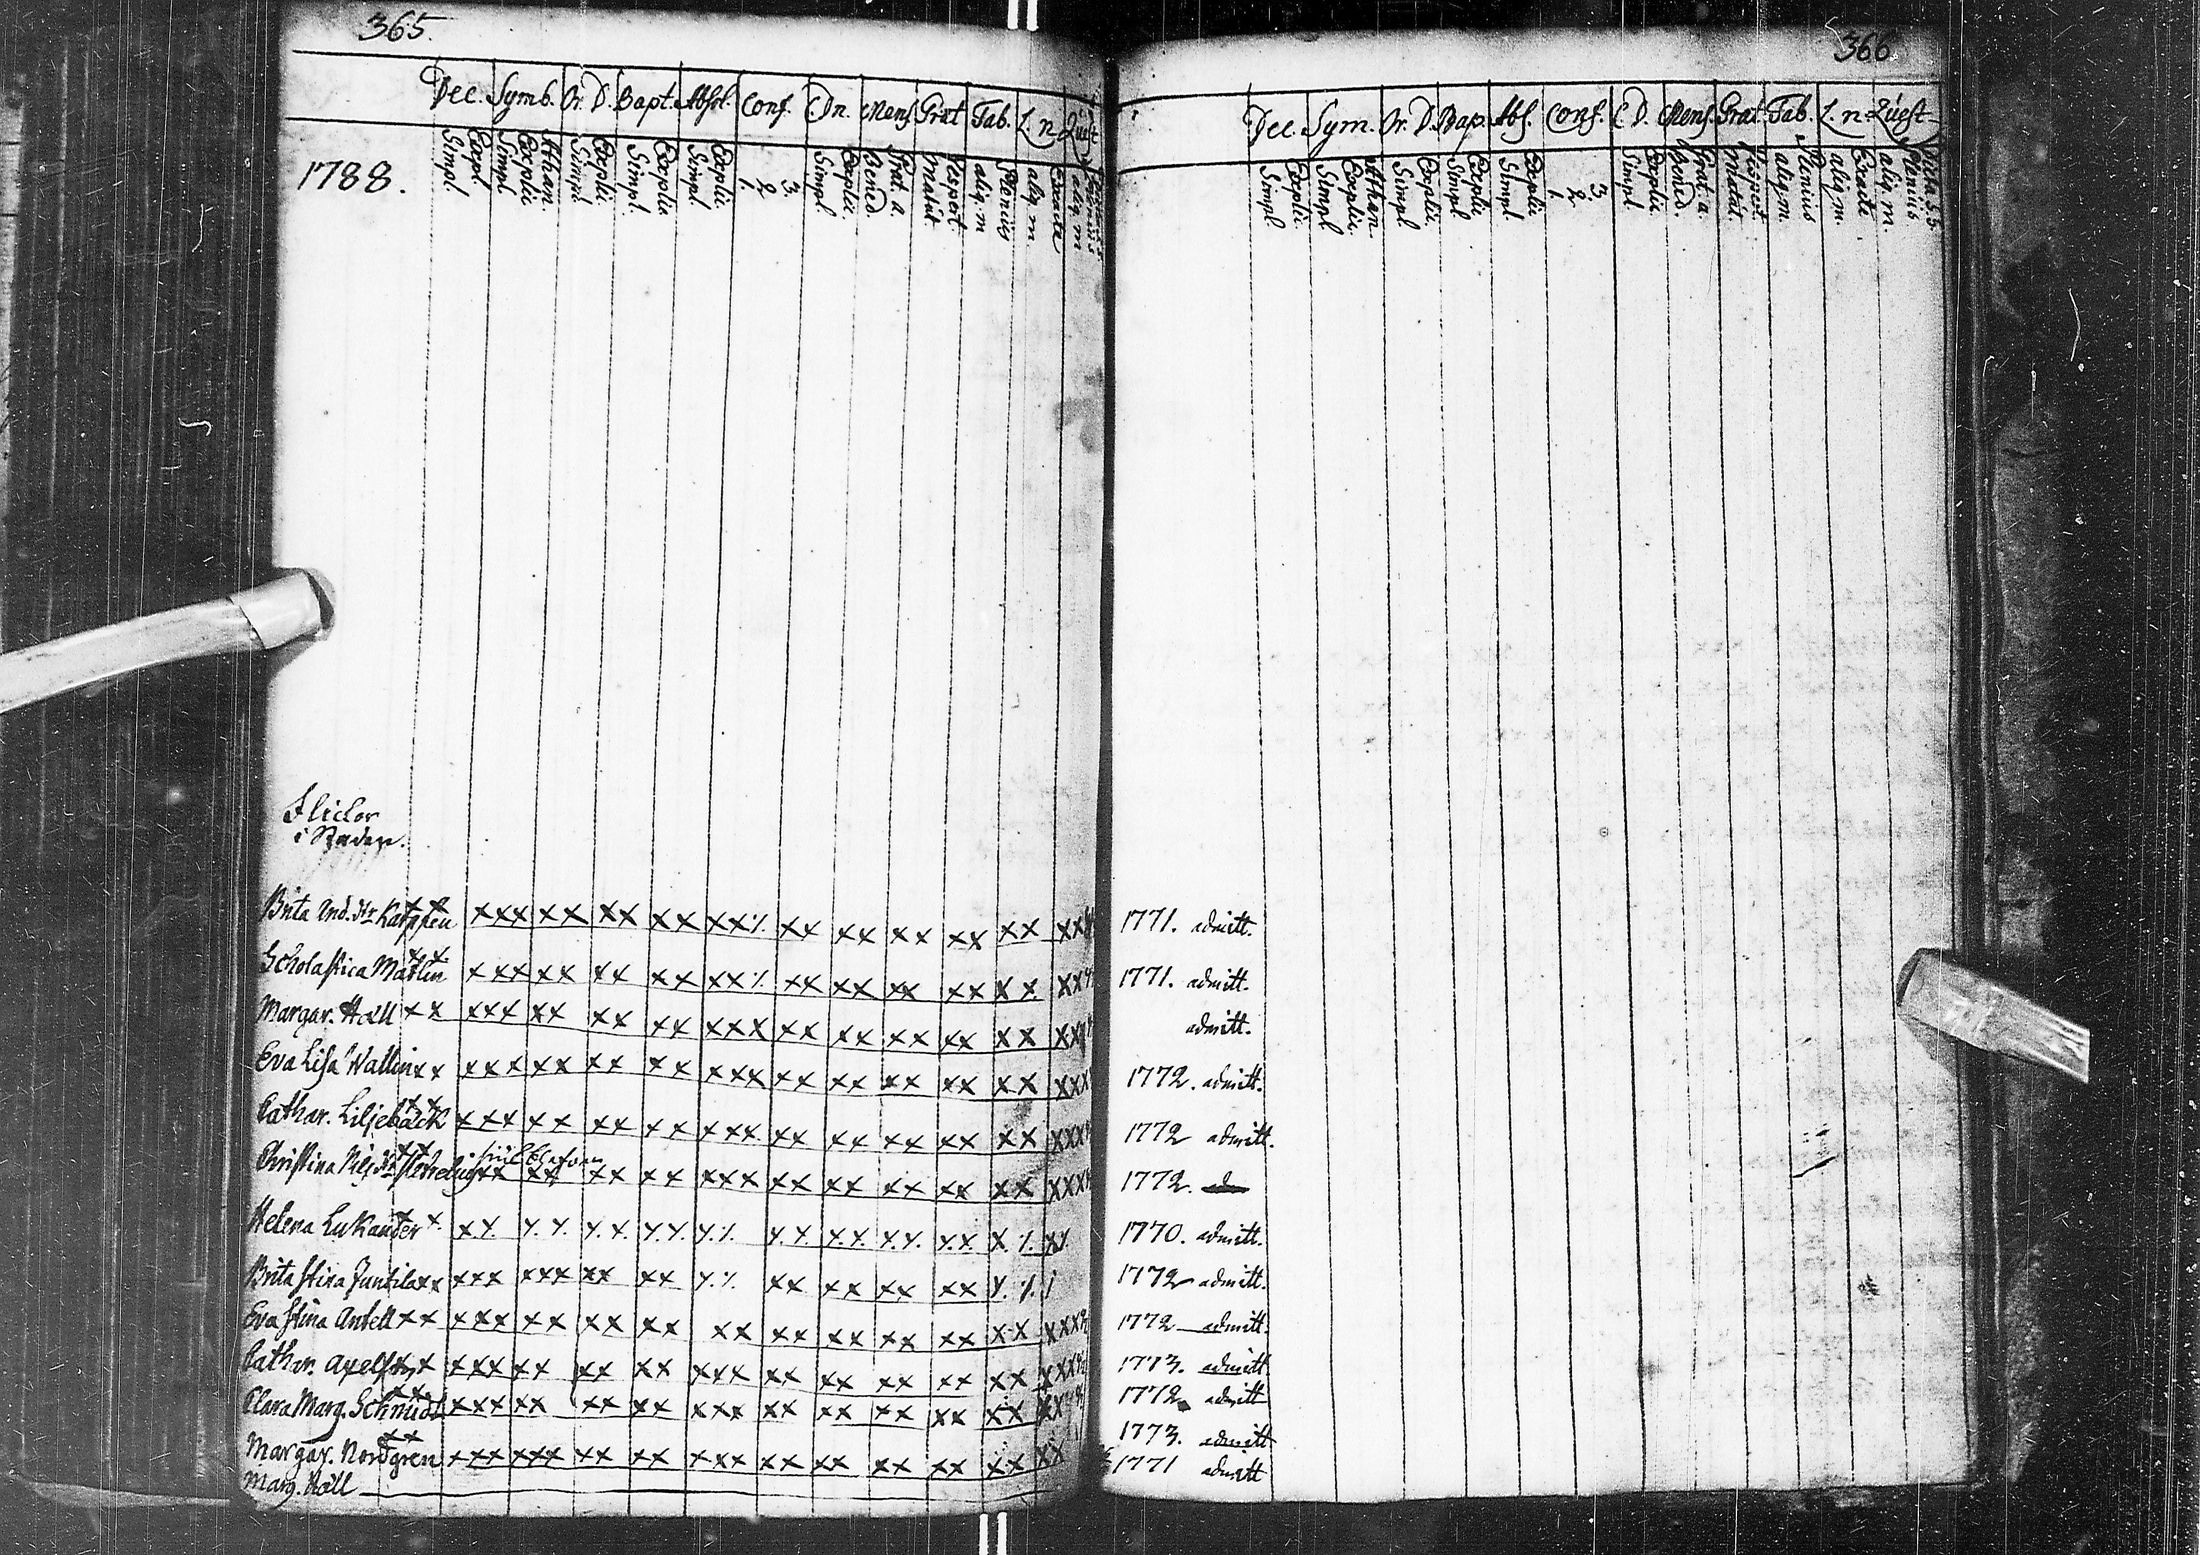 365.
Dec. Symb. Or. D. Bapt. Absol. Conf. C. Dn. Mens. Grat. Tab. L. n. Quæst
1788.
Simpl. Expl. Simpl Explic Athan. Simpl Explic. Simpl. Explic Simpl. Explic. 1 2 3. Simpl. Explic. Bened Grat. a. Matut Vespert. aliq. m Plenius aliq. m Exacte aliq. m
Flickor
i Staden.
Brita And. dtr Karppen xx xxx xx xx xx xx٪ xx xx xx xx xx
Scholastica Matlin xx xxx xx xx xx xx٪ xx xx xx xx xx
Margar. Häll xx xxx xx xx xx xxx xx xx xx xx xx
Eva Lisa Wallin xx xxx xx xx xx xxx xx xx xx xx xx
Cathar. Liljebäck xx xxx xx xx xx xxx xx xx xx xx xx
Christina Nilsdtr xx xx xx xx xxx xx xx xx xx xx
Helena Lukander
Brita Stina Juntila xx xxx xxx xx xx
Eva Stina Antell xx xxx xx xx xx xx xx xx xx xx xx
Cathar. Axelsson xx xxx xx xx xx xxx xx xx xx xx xx
Clara Marg. Schmidt xx xxx xx xx xx xxx xx xx xx xx xx
Margar. Nordgren xx xxx xxx xx xx xxx xx xx xx xx xx
Marg. Häll
366
Dec. Sym. Or. D. Bap. Abs. Conf. C. D. Mens. Grat. Tab. L. n. Quæst
Simpl Explic. Simpl Explic. Athan. Simpl Explic. Simpl Explic Simpl. Explic 1 2 3. Simpl Explic. Bened. Grat. a. Matut. Vespert. aliq. m. Plenius aliq. m. Exacte aliq. m. Plenius
1771. admitt.
1771. admitt.
admitt.
1772. admitt.
1772 admitt.
1772.
1770. admitt.
1772 admitt.
1772 admitt.
1773. admitt
1772 admitt
1773. admitt
1771 admitt